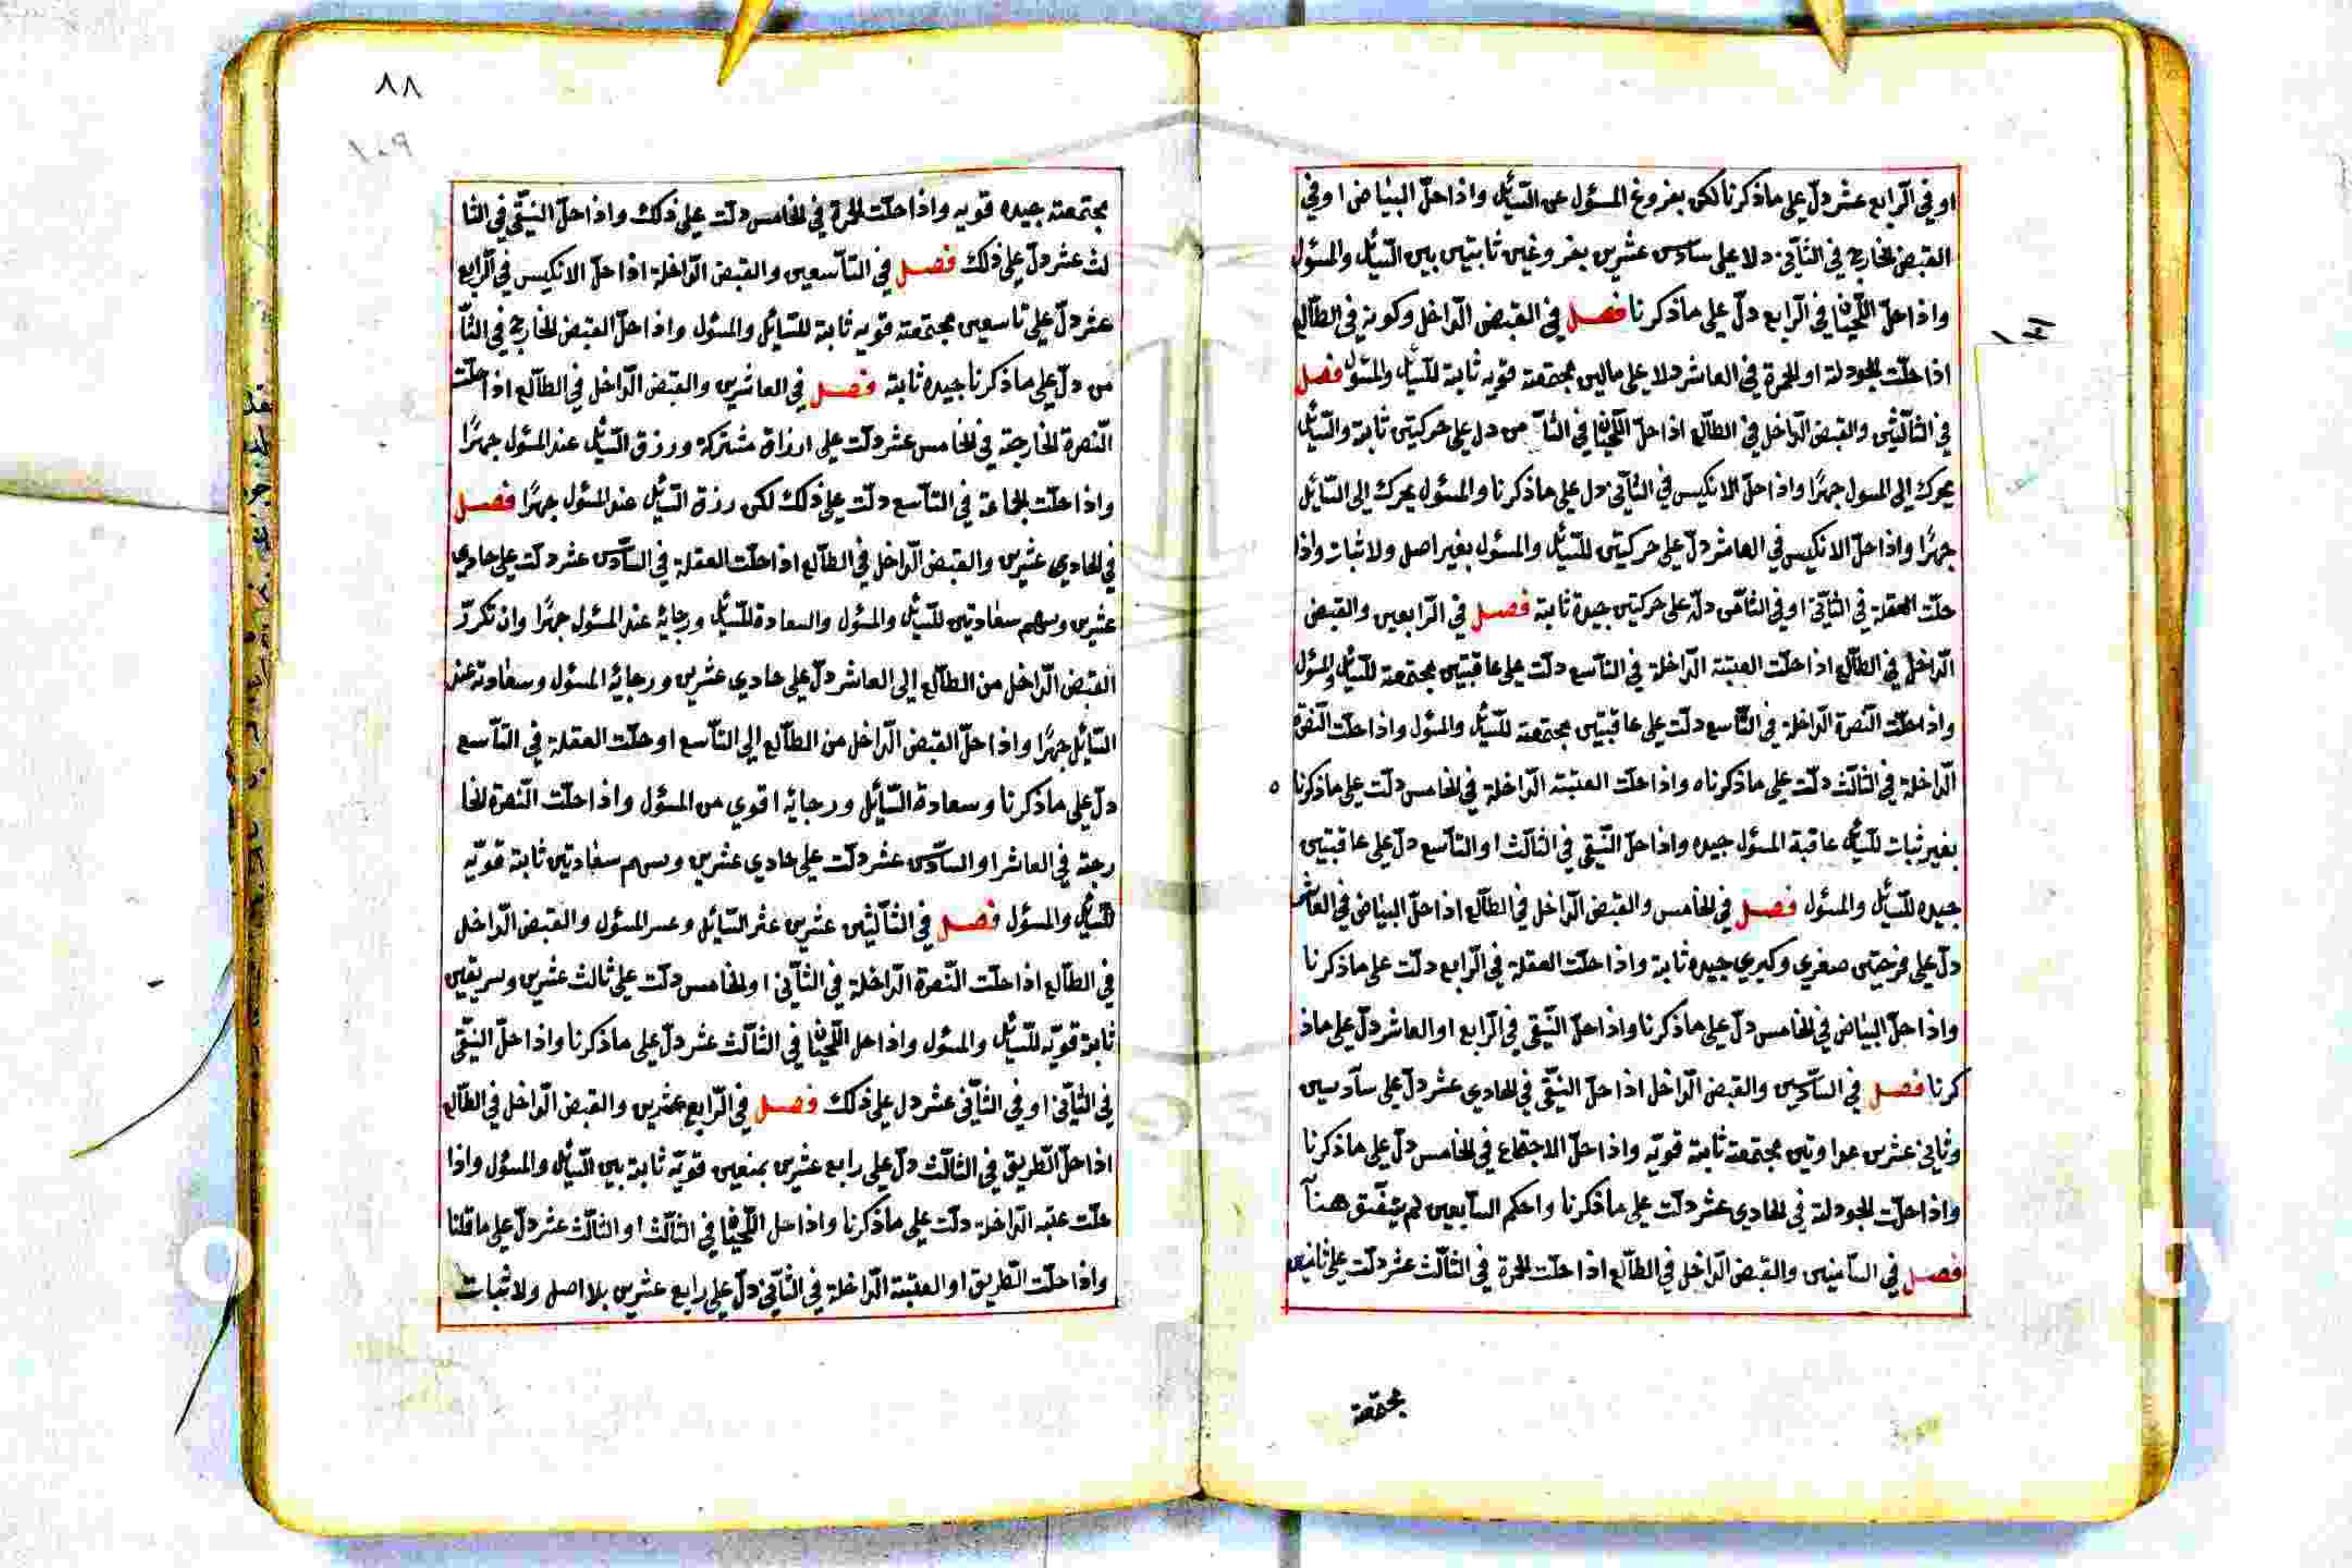 او في الرابع عشر دلّ على ماذكرنا لكن بفروغ المسئول عن السّائل واذا حلّ البياض او في
القبض الخارج في الثّاني دلا على سادس عشرين بفروغين ثابتين بين السّائل والمسئول
واذا حلّ اللّحيان في الرّابع دلّ على ماذكرنا فصل في القبض الدّاخل وكونه في الطّالع
اذا حلّت الجودلة او الحمرة في العاشر دلا على مالين مجتمعة قويه ثابتة للسّائل والمسئول فصل
في الثّالثين والقبض الدّاخل في الطّالع اذا حلّ اللّحيان في الثّامن دل على حركتين ثابتة والسّائل
يحرك الى المسول جهرًا واذا حلّ الانكيس في الثّاني دل على ماذكرنا والمسئول يحرك الى السّائل
جهرًا واذا حلّ الانكيس في العاشر دلّ على حركتين للسّائل والمسئول بغير اصل ولا ثبات واذا
حلّت العقلة في الثّاني او في الثّامن دلّة على حركتين جيدة ثابتة فصل في الرّابعين والقبض
الدّاخل في الطّالع اذا حلّت العتبة الدّاخلة في التّاسع دلّت على عاقبتين مجتمعة للسّائل والمسئول
واذا حلّت النّصرة الدّاخلة في التّاسع دلّت على عاقبتين مجتمعة للسّائل والمسئول واذا حلّت النّصرة
الدّاخلة في الثّالث دلّت على ماذكرناه واذا حلّت العتبة الدّاخلة في الخامس دلّت على ماذكرنا ه
بغير ثبات للسّائل عاقبة المسئول جيده واذا حلّ النّقي في الثّالث او التّاسع دلّ على عاقبتين
جيده للسّائل والمسئول فصل في الخامس والقبض الدّاخل في الطّالع اذا حلّ البياض في العاشر
دلّ على فرحتين صغري وكبري جيده ثابتة واذا حلّت العقلة في الرّابع دلّت على ماذكرنا
واذا حلّ البياض في الخامس دلّ على ماذكرنا واذا حلّ النّقي في الرّابع او العاشر دلّ على ماذ
كرنا فصل في السّادسين والقبض الدّاخل اذا حلّ النّقّي في الحادي عشر دلّ على سآدسين
وثاني عشرين عداوتين مجتمعة ثابتة قويّه واذا حلّ الاجتماع في الخامس دلّ على ماذكرنا
واذا حلّت الجودلة في الحادي عشر دلّت على ماذكرنا واحكم السّابعين لم يتّفق هنآ
فصل في الثّامنين والقبض الدّاخل في الطّالع اذا حلّت الحمرة في الثّالث عشر دلّت على ثامنين
مجتمعة
٨٨
مجتمعة جيده قويه واذا حلّت الحمرة في الخامس دلّت على ذلك واذا حلّ النّقّي في الثا
لث عشر دلّ على ذلك فصل في التّاسعين والقبض الدّاخلة اذا حلّ الانكيس في الرّابع
عشر دلّ على تاسعين مجتمعة قويه ثابتة للسّائل والمسئول واذا حلّ القبض الخارج في الثّا
من دلّ على ماذكرنا جيده ثابتة فصل في العاشرين والقبض الدّاخل في الطّالع اذا حلّت
النّصرة الخارجة في الخامس عشر دلّت على ارزاق مشتركة ورزق السّائل عند المسئول جهرًا
واذا حلّت الجماعة في التّاسع دلّت على ذلك لكن رزق السّائل عند المسئول جهرًا فصل
في الحادي عشرين والقبض الدّاخل في الطّالع اذا حلّت العقلة في السّادس عشر دلّت على حادي
عشرين وسهم سعادتين للسّائل والمسئول والسعادة للسّائل ورجائه عند المسئول جهرًا وان تكرّر
القبض الدّاخل من الطّالع الى العاشر دلّ على حادي عشرين ورجائه المسئول وسعادته عند
السّائل جهرًا واذا حلّ القبض الدّاخل من الطّالع الى التّاسع او حلّت العقلة في التّاسع
دلّ على ماذكرنا وسعادة السّائل ورجائه اقوي من المسئول واذا حلّت النّصرة الخا
رجة في العاشر او السّادس عشر دلّت على حادي عشرين وسهم سعادتين ثابتة قويّه
للسّائل والمسئول فصل في الثّالثين عشرين عشر السّائل وعسر المسئول والقبض الدّاخل
في الطّالع اذا حلّت النّصرة الدّاخلة في الثّاني او الخامس دلّت على ثالث عشرين وسريقين
ثابتة قويّه للسّائل والمسئول واذا حل اللّحيان في الثّالث عشر دلّ على ماذكرنا واذا حلّ النّقّي
في الثّاني او في الثّاني عشر دل على ذلك فصل في الرّابع عشرين والقبض الدّاخل في الطّالع
اذا حلّ الطّريق في الثّالث دلّ على رابع عشرين بمنعين قويّه ثابتة بين السّائل والمسئول واذا
حلّت عتبه الدّاخلة دلّت على ماذكرنا واذا حل اللّحيان في الثّالث او الثّالث عشر دلّ على ماقلنا
واذا حلّت الطّريق او العتبة الدّاخلة في الثّاني دلّ على رابع عشرين بلا اصل ولا ثبات